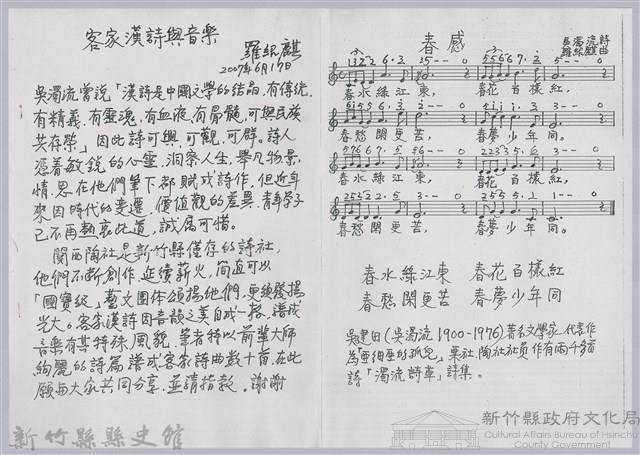 客家漢詩與音樂
羅紀麒
2007年6月17日
吳濁流曾說「漢詩是中國文學的結晶,有傳統,
有精義.有靈魂.有血液.有骨髓,可與民族
共存榮」因此詩可興,可觀,可群。詩人
憑着敏銳的心靈,洞察人生,舉凡物景,
情.思在他們筆下都賦成詩作,但近年
來因時代的變遷,價值觀的差異,青年學子
已不再熱衷此道,誠屬可惜。
關西陶社是新竹縣僅存的詩社,
他們不斷創作,延續薪火,簡直可以
「國寶級」藝文團体頌揚他們,更須發揚
光大。客家漢詩因音韻之美自成一格,譜成
音樂有其特殊風貌,筆者特以前輩大師
絢麗的詩篇譜成客家詩曲數十首,在此
願與大家共同分享,並請指教。謝謝
春感
吳濁流詩
羅紀麒曲
春水綠江東, 春花百樣紅,
春愁閑更苦, 春夢少年同。
春水綠江東, 春花百樣紅,
春愁閑更苦, 春夢少年同。
春水綠江東 春花百樣紅
春愁閑更苦 春夢少年同
吳建田(吳濁流1900-1976)著名文學家,代表作
為「亞細亞的孤兒」,栗社,陶社社員作有兩千多首
詩「濁流詩草」詩集。
新竹縣縣史館
新竹縣政府文化局
Cultural Affairs Bureau of Hsinchu
County Government